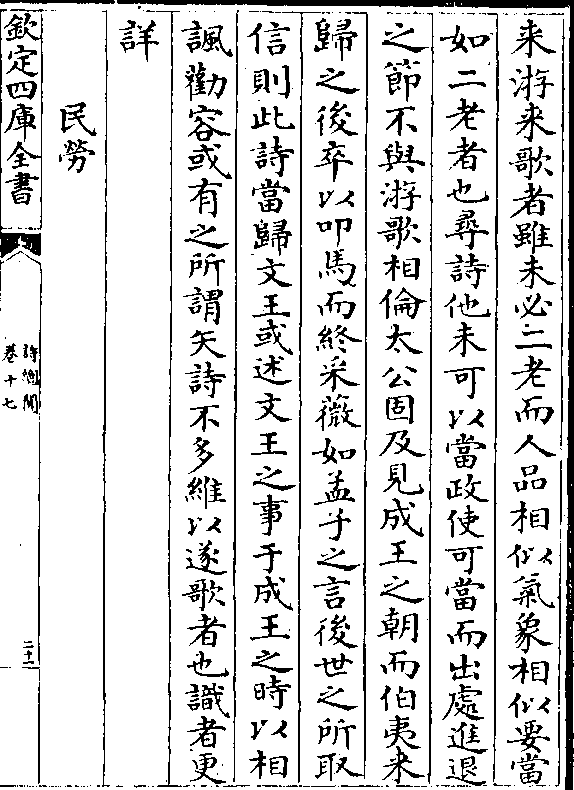 来游来歌者雖未必二老而人品相似氣象相似要當
如二老者也尋詩他未可以當政使可當而出處進退
之節不與游歌相倫太公固及見成王之朝而伯夷来
歸之後卒以叩馬而終采薇如孟子之言後世之所取
信則此詩當歸文王或述文王之事于成王之時以相
諷勸容或有之所謂矢詩不多維以遂歌者也識者更
詳
民勞
欽定四庫全書
詩總聞
卷十七
二十二